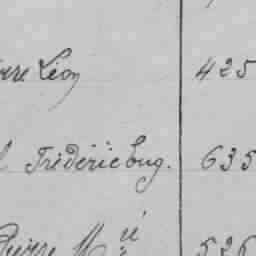 Léon 425
Frédéric Eug. 635
Pierre M 526